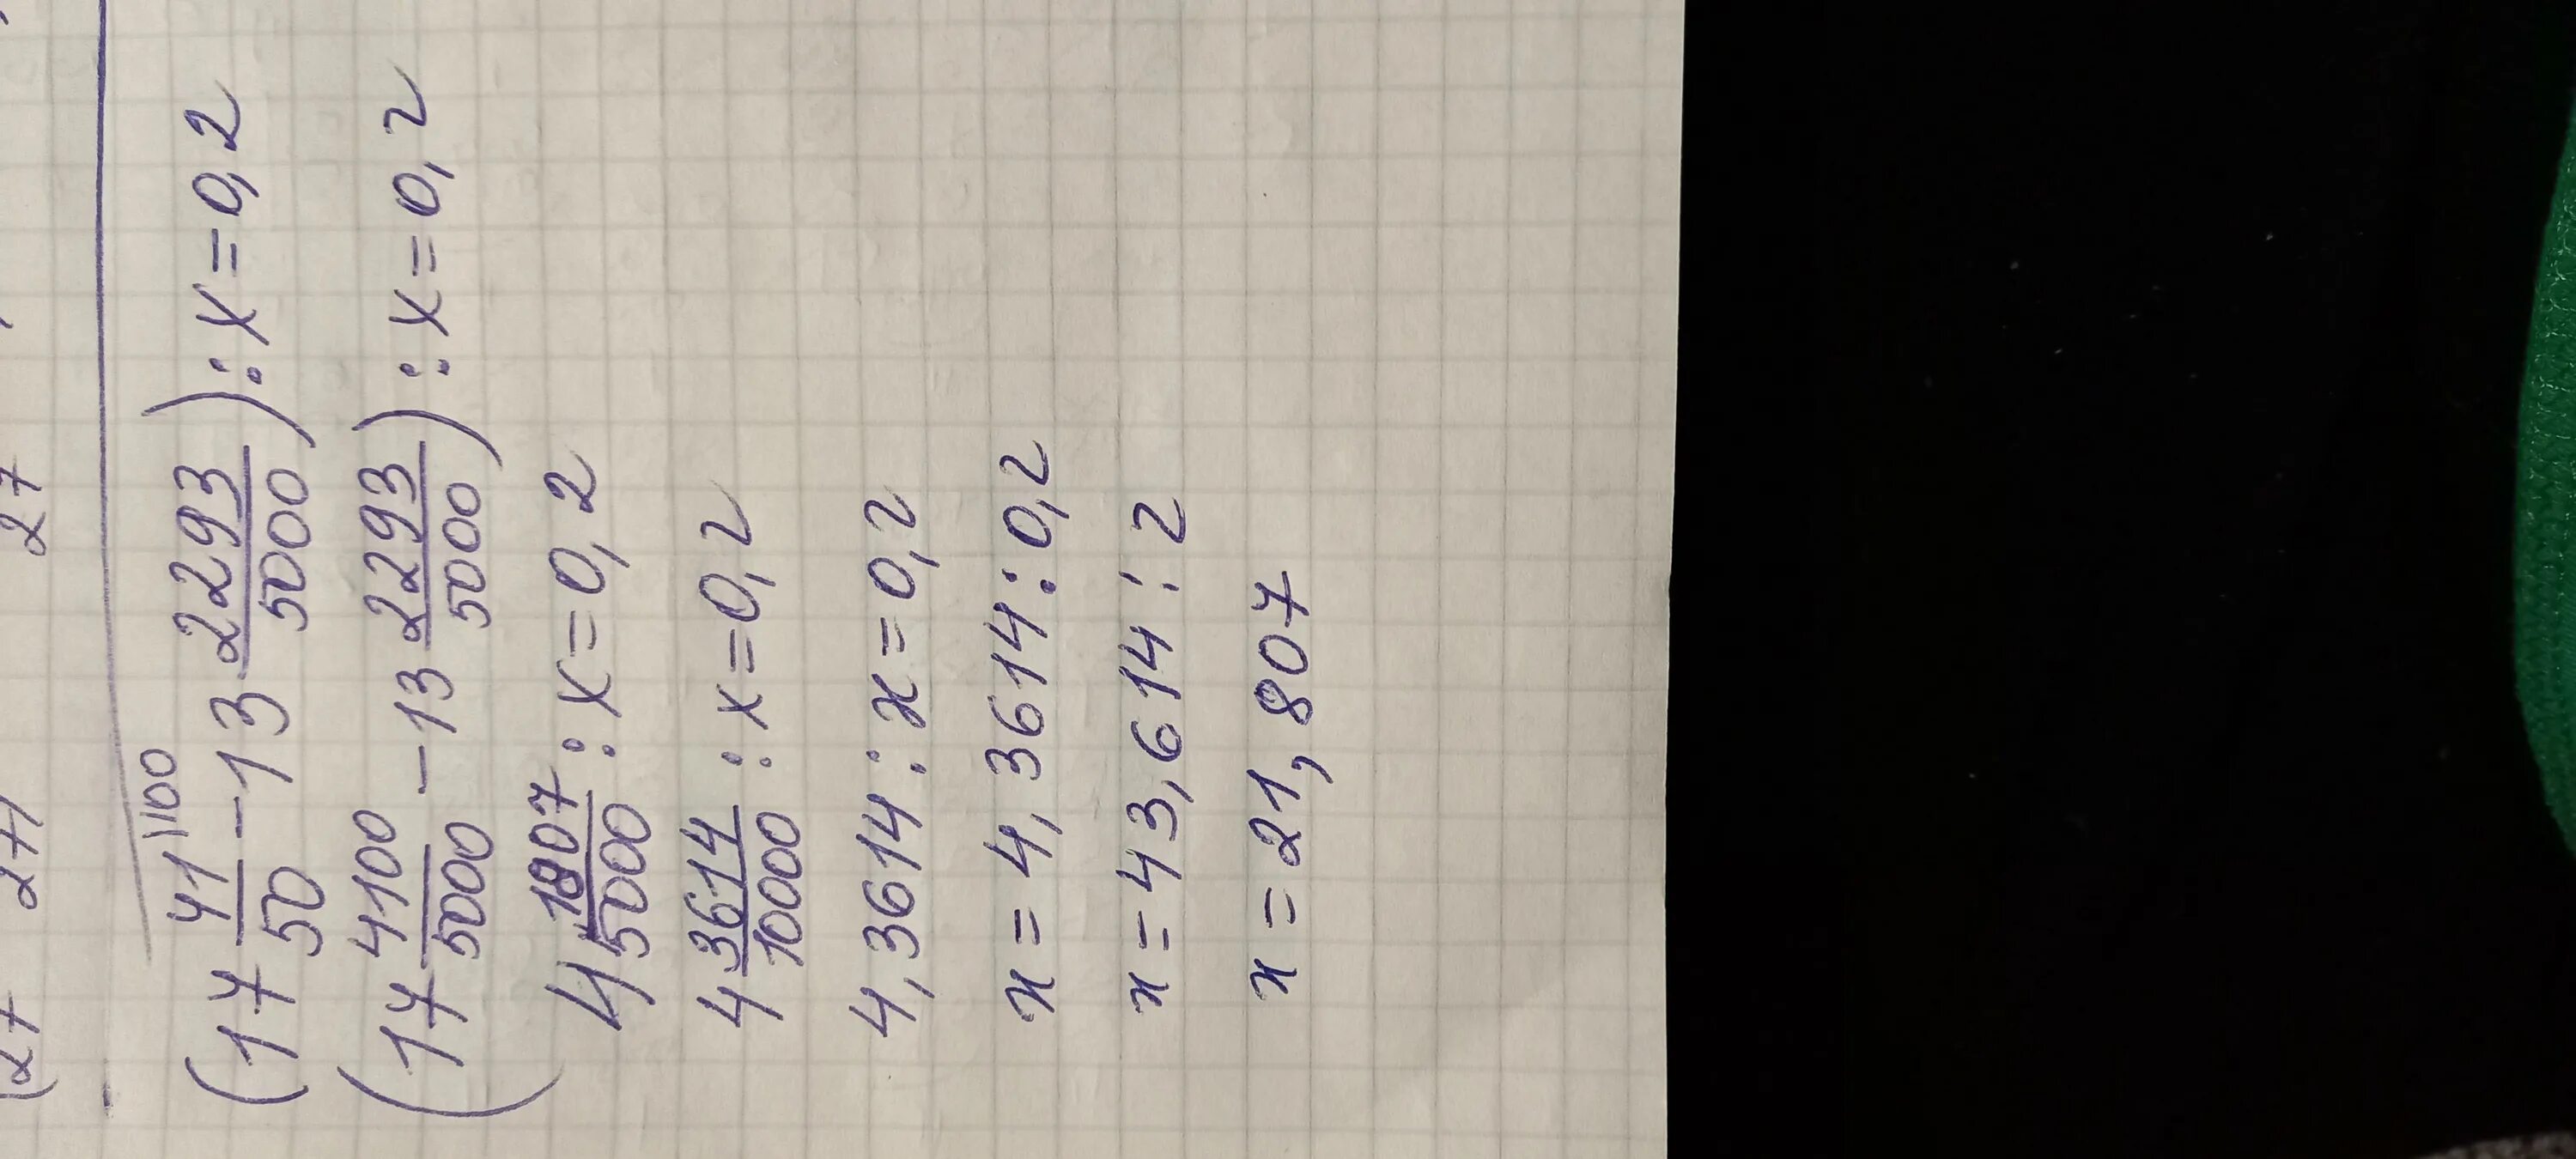 (17 41/50 \100 − 13 2293/5000) : x = 0,2
(17 4100/5000 − 13 2293/5000) : x = 0,2
4 1807/5000 : x = 0,2
4 3614/10000 : x = 0,2
4,3614 : x = 0,2
x = 4,3614 : 0,2
x = 43,614 : 2
x = 21,807